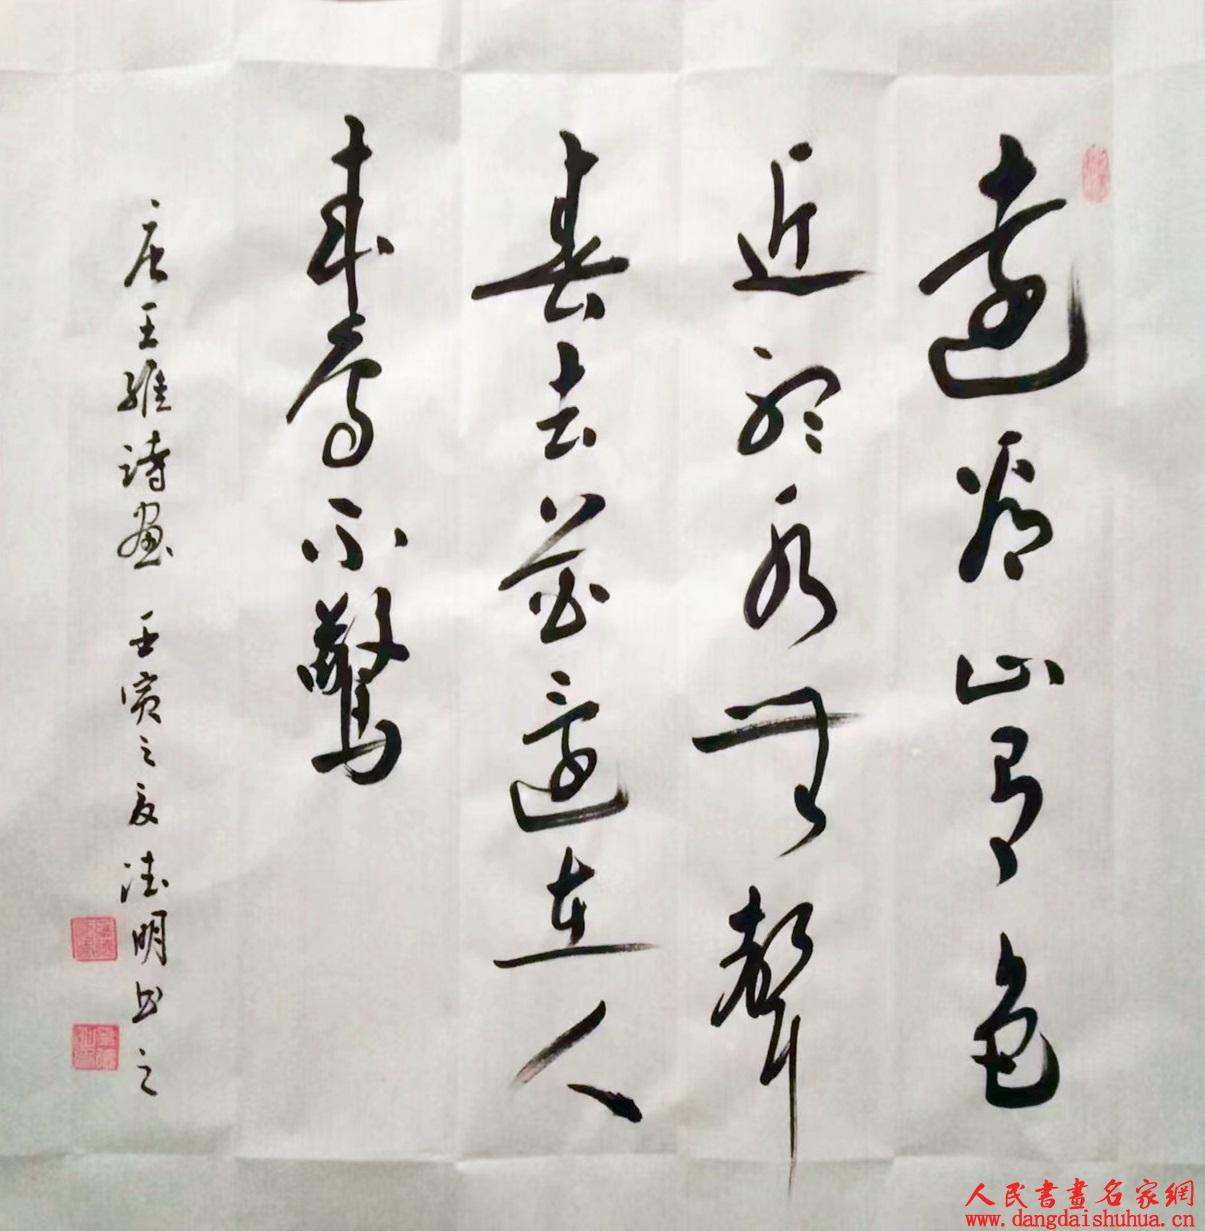 遠看山有色
近聽水無聲
春去花還在人
来鸟不驚
唐王維诗画 壬寅之夏德明书之
人民書畫名家網
www.dangdaishuhua.cn